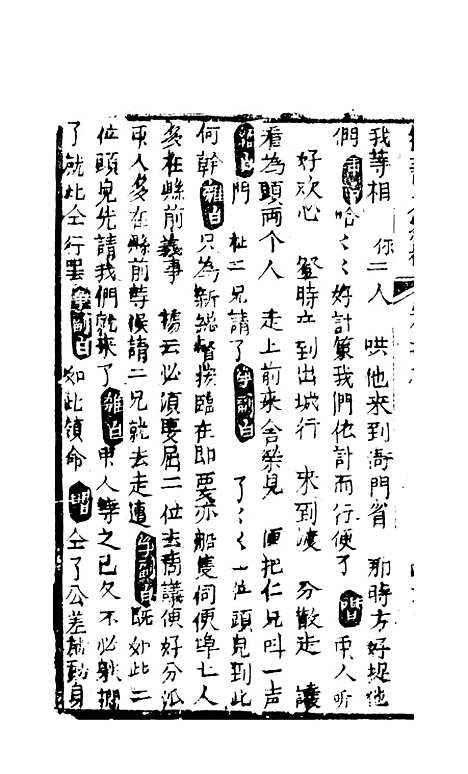 我等相　你二人　哄他來到衙門首　那時方好捉他
們　衆白　哈〻〻好計策我們他計而行便了　唱　衆人听
好欢心　登時卒到出城行　來到渡　分散走　讓
看為頭兩个人　走上前來舍柴見　便把仁兄叫一声
門　杜二兄請了　李副白　了〻〻一位頭兒到此
何幹　雜白　只為新總督按臨在即要亦船隻伺便埠七人
多在縣前義事　揚云必須要屈二位去商議便好分派
衆人多在縣前等候請二兄就去走遭　李副白　既如此二
位頭兒先請我們就來了　雜白　衆人等之已久不必躭擱
了就此仝行罢　李副白　如此領命　唱　仝了公差就動身